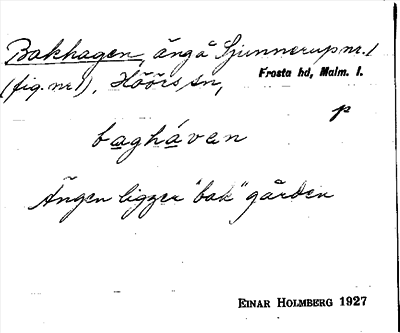 Bakhagen, äng å Sjunnerup nr. 1
(fig. nr 1), Höörs sn,
Frosta hd, Malm. l.
p
baghávan
Ängen ligger "bak" gården
EINAR HOLMBERG 1927